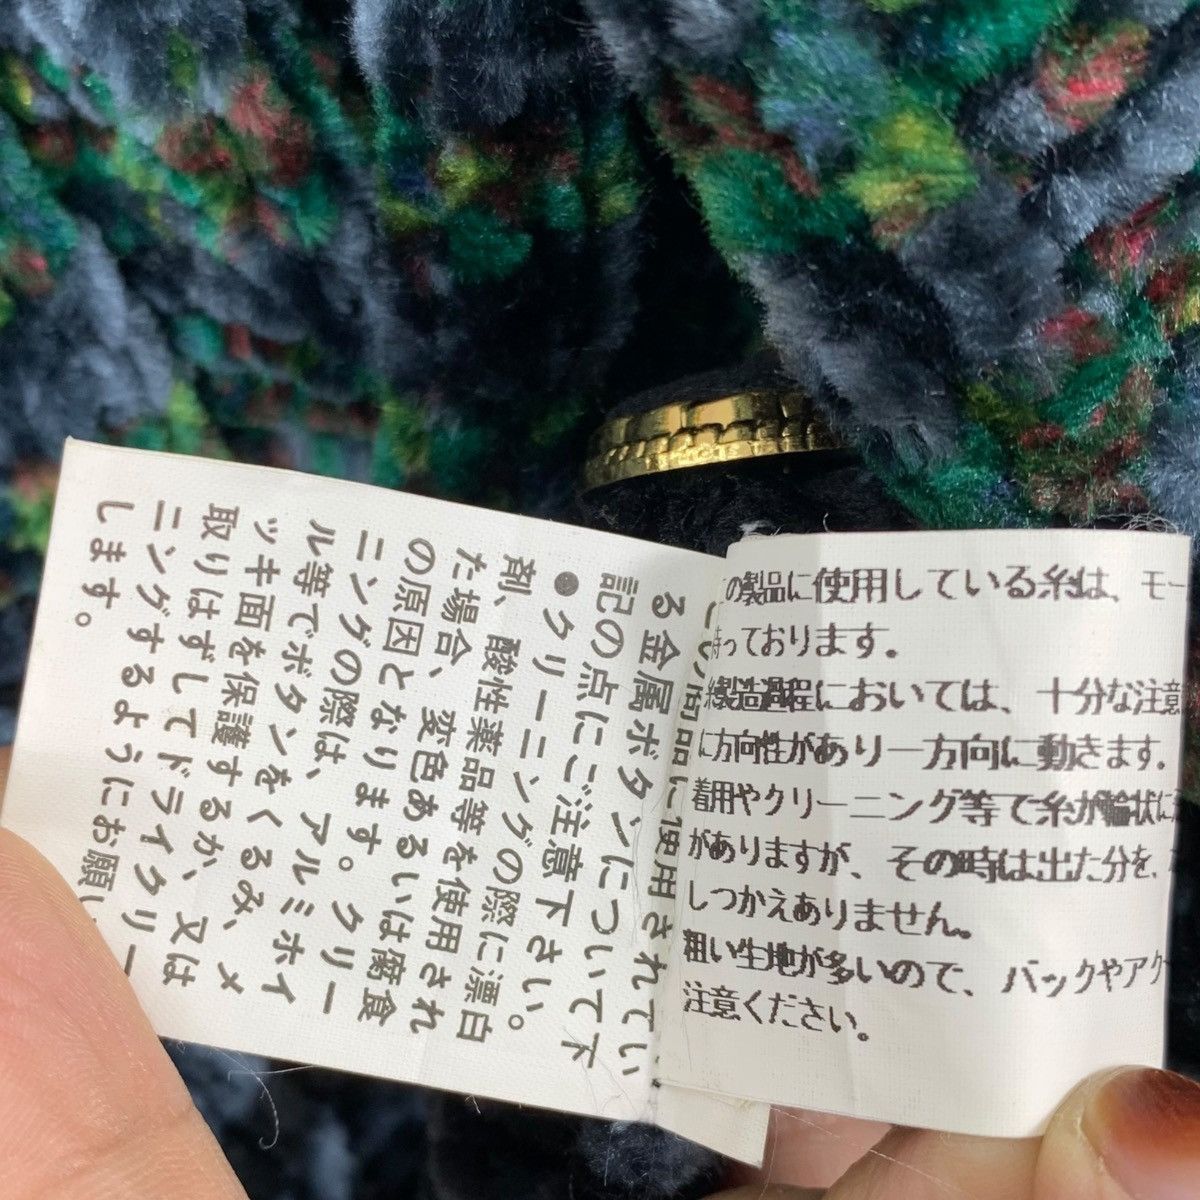 の製品に使用している糸は、モー
持っております。
製造過程においては、十分な注意
に方向性があり一方向に動きます。
着用やクリーニング等で糸が輪状に
がありますが、その時は出た分を、
しつかえありません。
粗い生地が多いので、バックやアク
注意ください。
の商品に使用されてい
る金属ボタンについて下
記の点にご注意下さい。
●クリーニングの際に漂白
剤、酸性薬品等を使用され
た場合、変色あるいは腐食
の原因となります。クリー
ニングの際は、アルミホイ
ル等でボタンをくるみ、メ
ッキ面を保護するか、又は
取りはずしてドライクリー
ニングするようにお願い
します。